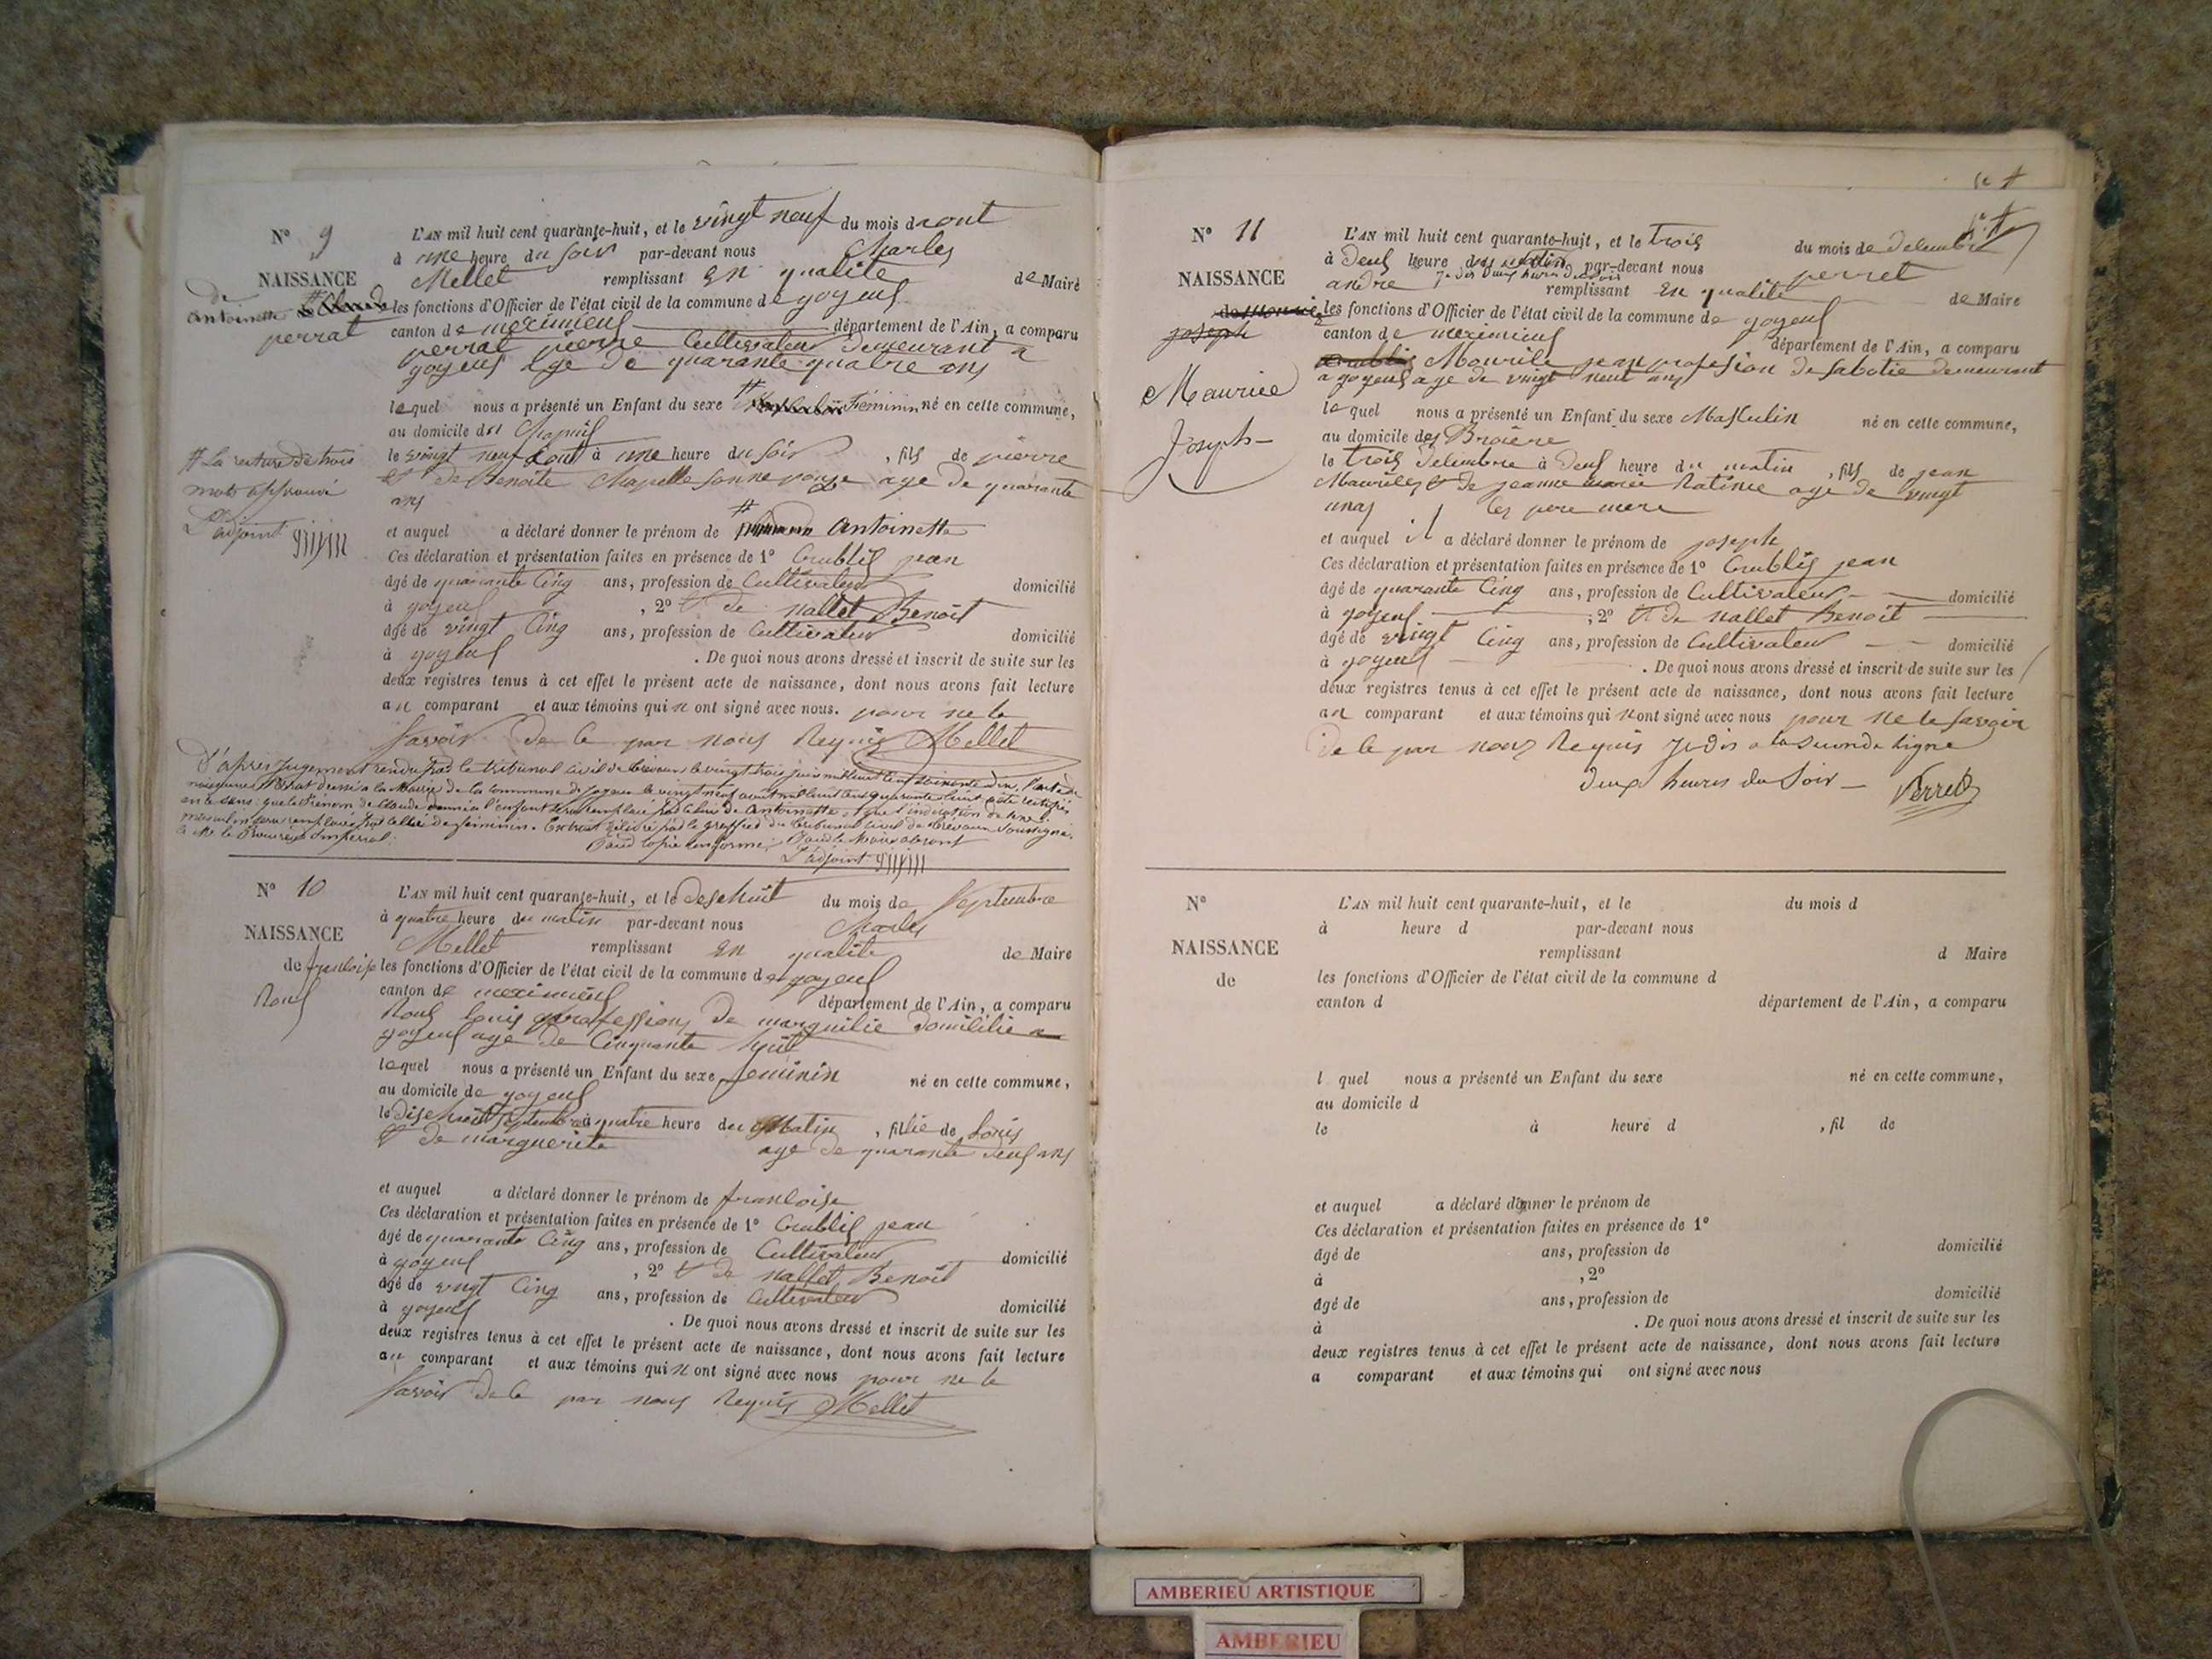 Nº 9
NAISSANCE
de
Antoinette
perrat
L'AN mil huit cent quarante-huit, et le vingt neuf du mois daout
à une heure du soir par-devant nous Charles
Mellet remplissant en qualite de Maire
les fonctions d'Officier de l'état civil de la commune de joyeux
canton de meximieux département de l'Ain, a comparu
perrat pierre Cultivateur demeurant a
joyeux age de quarante quatre ans
lequel nous a présenté un Enfant du sexe # Féminin né en cette commune,
au domicile des
le vingt neuf aout à une heure du soir, fils de pierre
et de Benoite Chapelle age de quarante
ans
# La rature de trois
mots approuvé
L'adjoint
et auquel a déclaré donner le prénom de # Antoinette
Ces déclaration et présentation faites en présence de 1º Crublis jean
âgé de quarante Cinq ans, profession de Cultivateur domicilié
à joyeux, 2º et de nallet Benoit
âgé de vingt Cinq ans, profession de Cultivateur domicilié
à joyeux. De quoi nous avons dressé et inscrit de suite sur les
deux registres tenus à cet effet le présent acte de naissance, dont nous avons fait lecture
au comparant et aux témoins qui n ont signé avec nous. pour ne le
savoir de ce par nous Requis Mellet
D'après jugement rendu par le tribunal civil de Trévoux le vingt trois juin mil huit cent soixante dix, l'acte de
naissance dressé a la Mairie de la commune de Joyeux le vingt neuf aout mil huit cent quarante huit a été rectifié
en ce sens que le Prénom de Claude donné a l'enfant sera remplacé par celui de Antoinette et que l'indication du sexe
masculin sera remplacée par celle de féminin. Extrait délivré par le greffier du tribunal civil de Trévoux soussigné.
le Procureur Imperial. Pour copie conforme, Pour le Maire absent
L'adjoint
Nº 10
NAISSANCE
de francoise
Roux
L'AN mil huit cent quarante-huit, et le desehuit du mois de Septembre
à quatre heure du matin par-devant nous Charles
Mellet remplissant en qualite de Maire
les fonctions d'Officier de l'état civil de la commune de joyeux
canton de meximieux département de l'Ain, a comparu
Roux louis profession de marguilie domicilie a
joyeux age de Cinquante huit
lequel nous a présenté un Enfant du sexe feminin né en cette commune,
au domicile de joyeux
le disehuit septembre à quatre heure du Matin, fillie de Louis
et de marguerite age de quarante deux ans
et auquel a déclaré donner le prénom de francoise
Ces déclaration et présentation faites en présence de 1º Crublis jean
âgé de quarante Cinq ans, profession de Cultivateur domicilié
à joyeux, 2º et de nallet Benoit
âgé de vingt Cinq ans, profession de Cultivateur domicilié
à joyeux. De quoi nous avons dressé et inscrit de suite sur les
deux registres tenus à cet effet le présent acte de naissance, dont nous avons fait lecture
au comparant et aux témoins qui n ont signé avec nous pour ne le
savoir de ce par nous Requis Mellet
Nº 11
NAISSANCE
joseph
Maurice
Joseph
L'AN mil huit cent quarante-huit, et le trois du mois de decembre
à deux heure du matin par-devant nous perret
je dis deux heures du soir
andre remplissant en qualite de Maire
les fonctions d'Officier de l'état civil de la commune de joyeux
canton de meximieux département de l'Ain, a comparu
Maurice jean profession de sabotie demeurant
a joyeux age de vingt neuf ans
lequel nous a présenté un Enfant du sexe Masculin né en cette commune,
au domicile des Broière
le trois decembre à deux heure du matin, fils de jean
Maurice et de jeanne marie Ratinie age de vingt
unas les pere mere
et auquel il a déclaré donner le prénom de joseph
Ces déclaration et présentation faites en présence de 1º Crublis jean
âgé de quarante Cinq ans, profession de Cultivateur domicilié
à joyeux ; 2º et de nallet Benoit
âgé de vingt Cinq ans, profession de Cultivateur domicilié
à joyeux. De quoi nous avons dressé et inscrit de suite sur les
deux registres tenus à cet effet le présent acte de naissance, dont nous avons fait lecture
au comparant et aux témoins qui n ont signé avec nous pour ne le savoir
de ce par nous Requis je dis a la seconde ligne
deux heures du soir Perret
Nº
NAISSANCE
de
L'AN mil huit cent quarante-huit, et le du mois d
à heure d par-devant nous
remplissant d Maire
les fonctions d'Officier de l'état civil de la commune d
canton d département de l'Ain, a comparu
l quel nous a présenté un Enfant du sexe né en cette commune,
au domicile d
le à heure d , fil de
et auquel a déclaré donner le prénom de
Ces déclaration et présentation faites en présence de 1º
âgé de ans, profession de domicilié
à , 2º
âgé de ans, profession de domicilié
à . De quoi nous avons dressé et inscrit de suite sur les
deux registres tenus à cet effet le présent acte de naissance, dont nous avons fait lecture
a comparant et aux témoins qui ont signé avec nous
AMBERIEU ARTISTIQUE
AMBERIEU